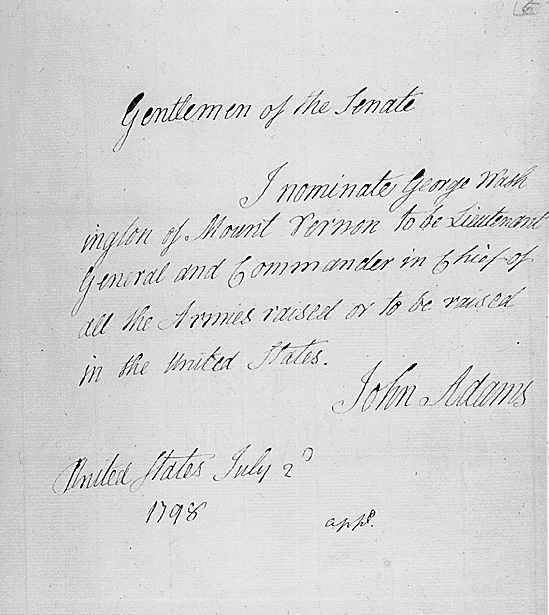 Gentlemen of the Senate
I nominate George Wash
ington of Mount Vernon to be Lieutenant
General and Commander in Chief of
all the Armies raised or to be raised
in the United States.
John Adams
United States July 2d
1798
appd.